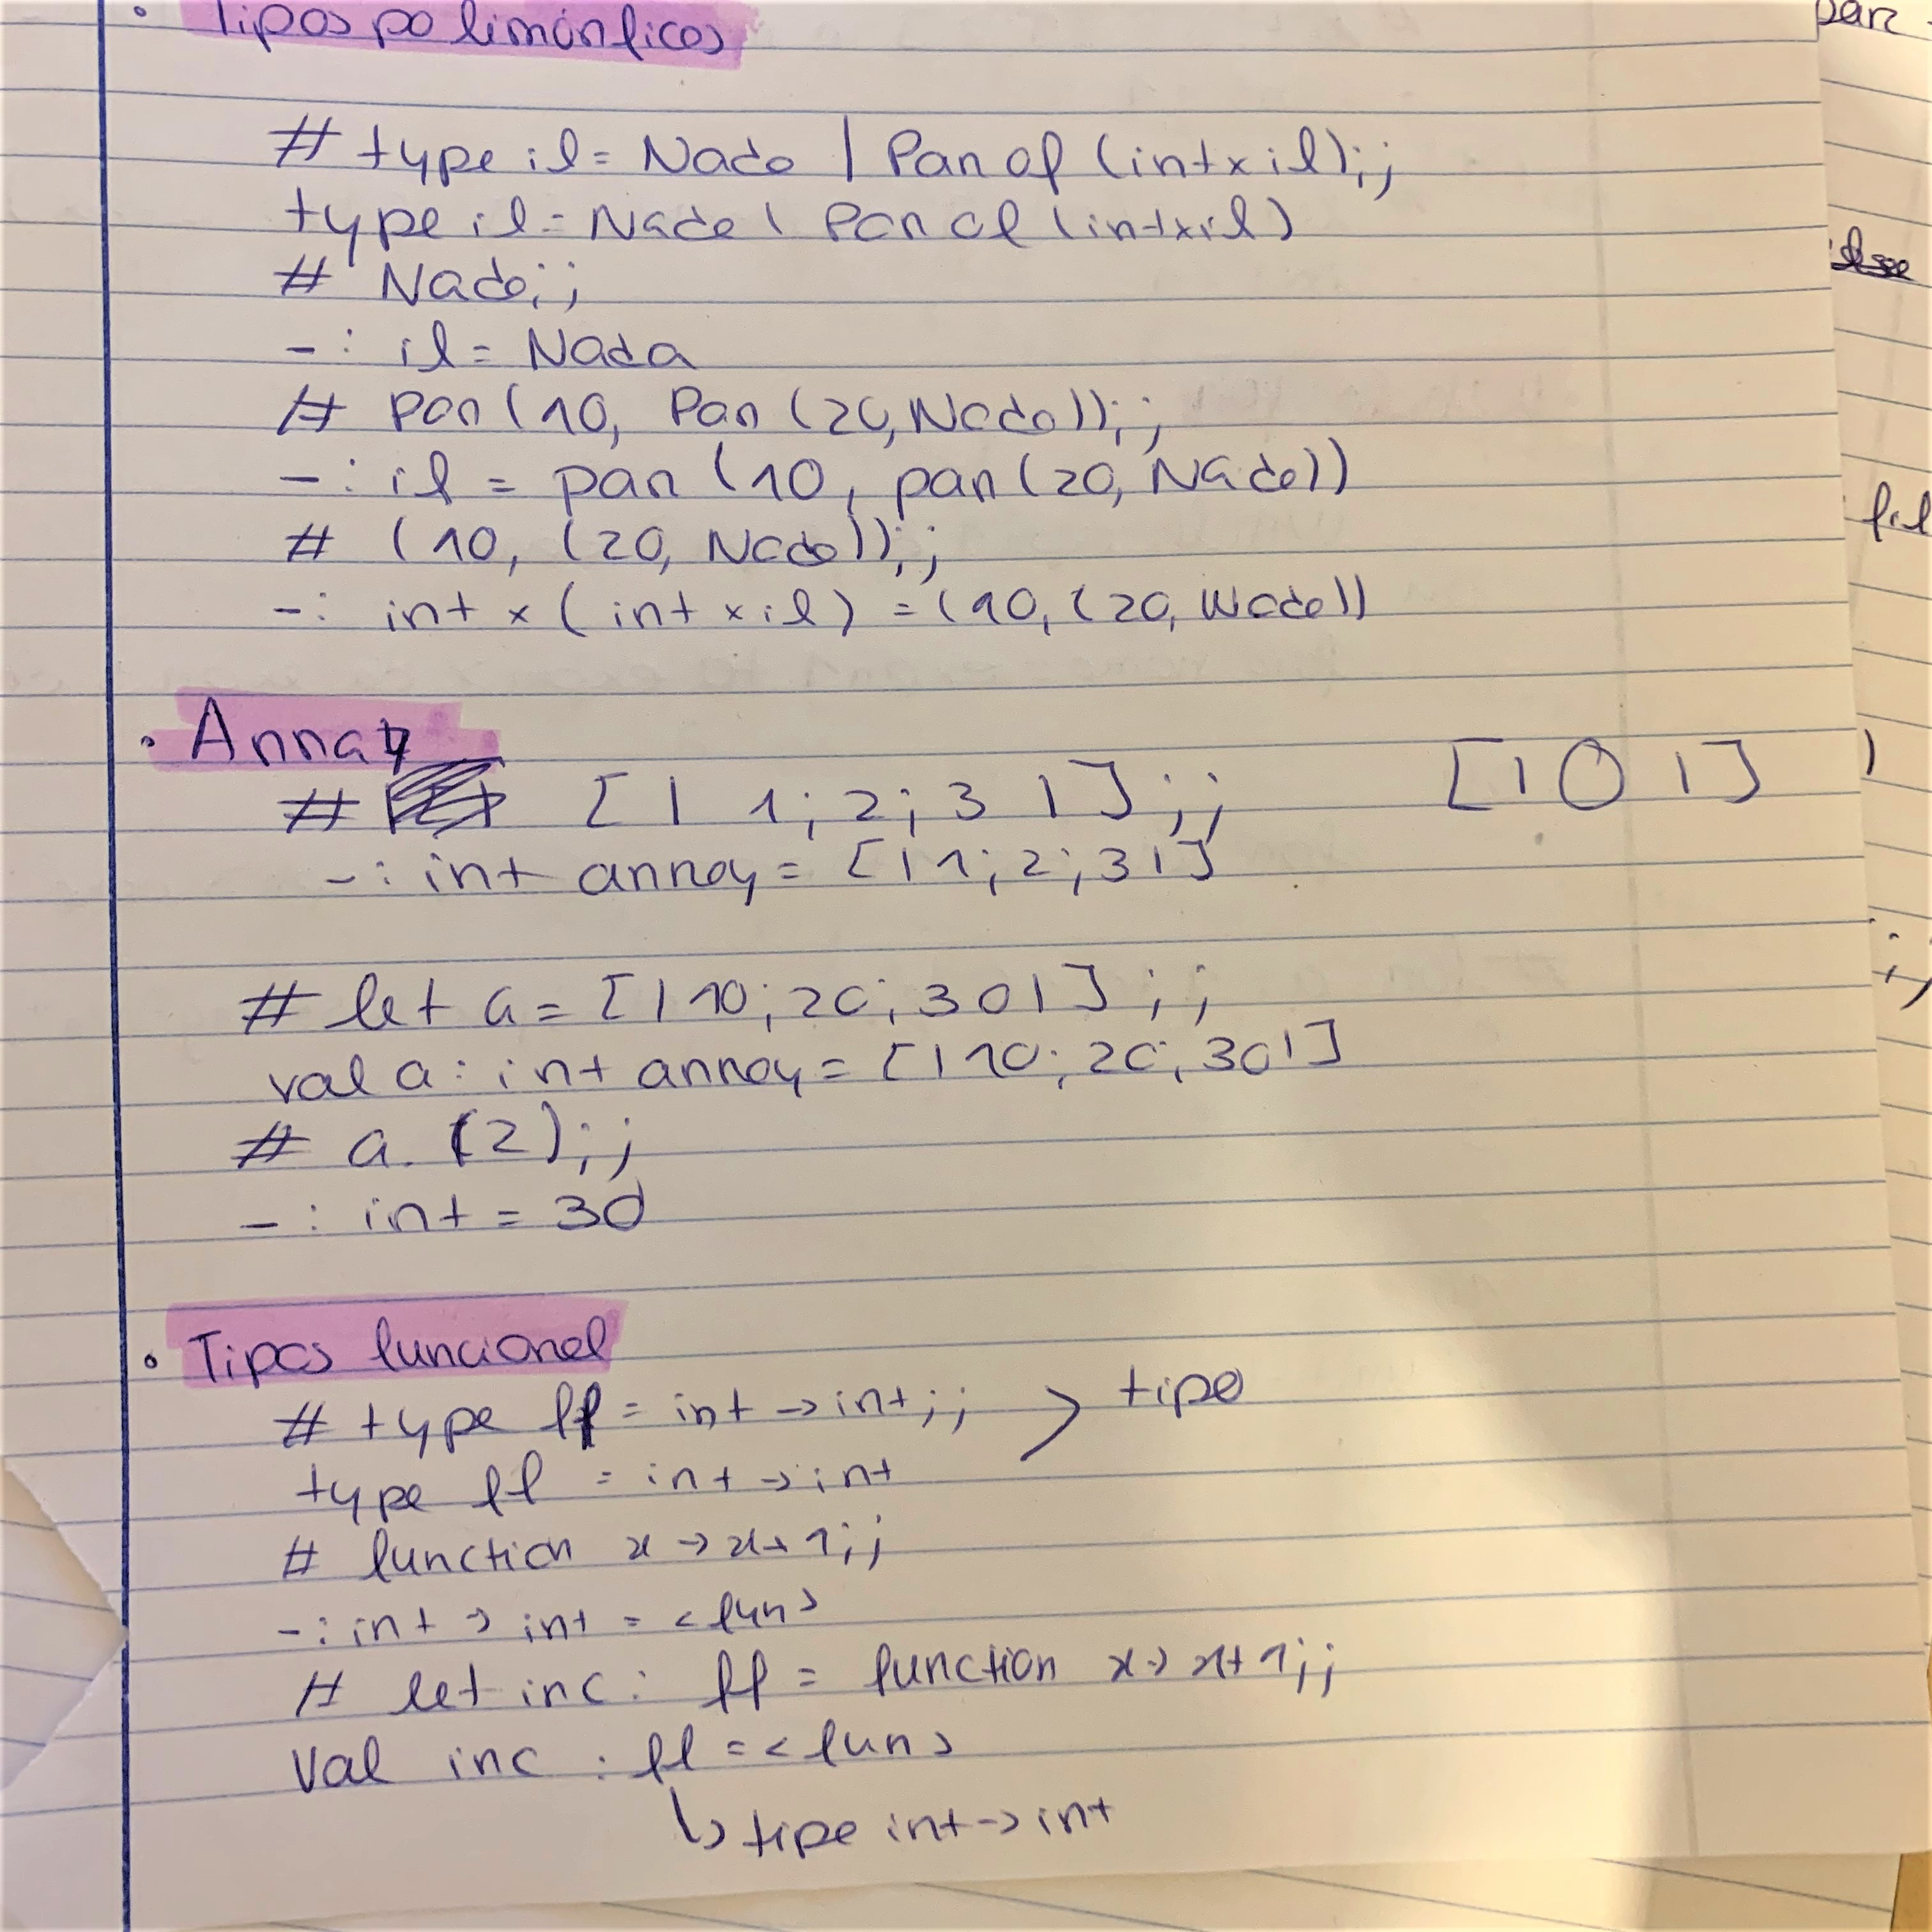 · Tipos polimórficos
# type il = Nada | Par of (int x il);;
type il = Nada | Par of (int x il)
# Nada;;
- : il = Nada
# Par (10, Par (20, Nada));;
- : il = par (10, par (20, Nada))
# (10, (20, Nada));;
- : int x (int x il) = (10, (20, Nada))
· Array
# [| 1; 2; 3 |];; [| 0 |]
- : int array = [|1; 2; 3|]
# let a = [|10; 20; 30|];;
val a : int array = [|10; 20; 30|]
# a.(2);;
- : int = 30
· Tipos funcional
# type ff = int -> int;; > tipo
type ff = int -> int
# function x -> x+1;;
- : int -> int = <fun>
# let inc : ff = function x -> x+1;;
val inc : ff = <fun>
↳ tipo int -> int
par